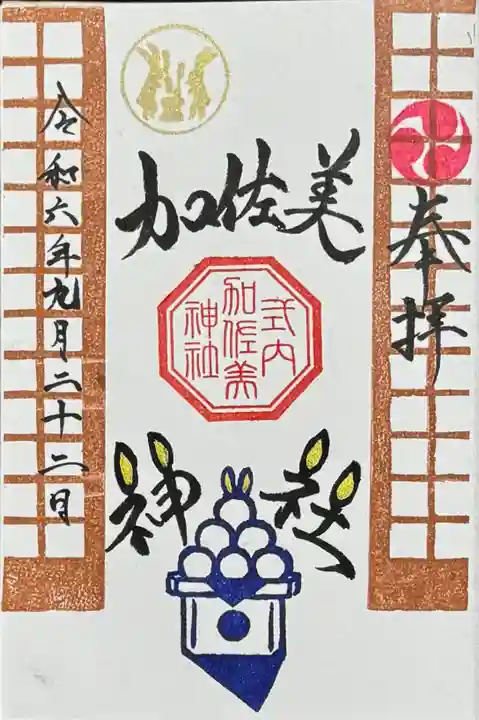 奉拝
加佐美
神社
式内
加佐美
神社
令和六年九月二十二日